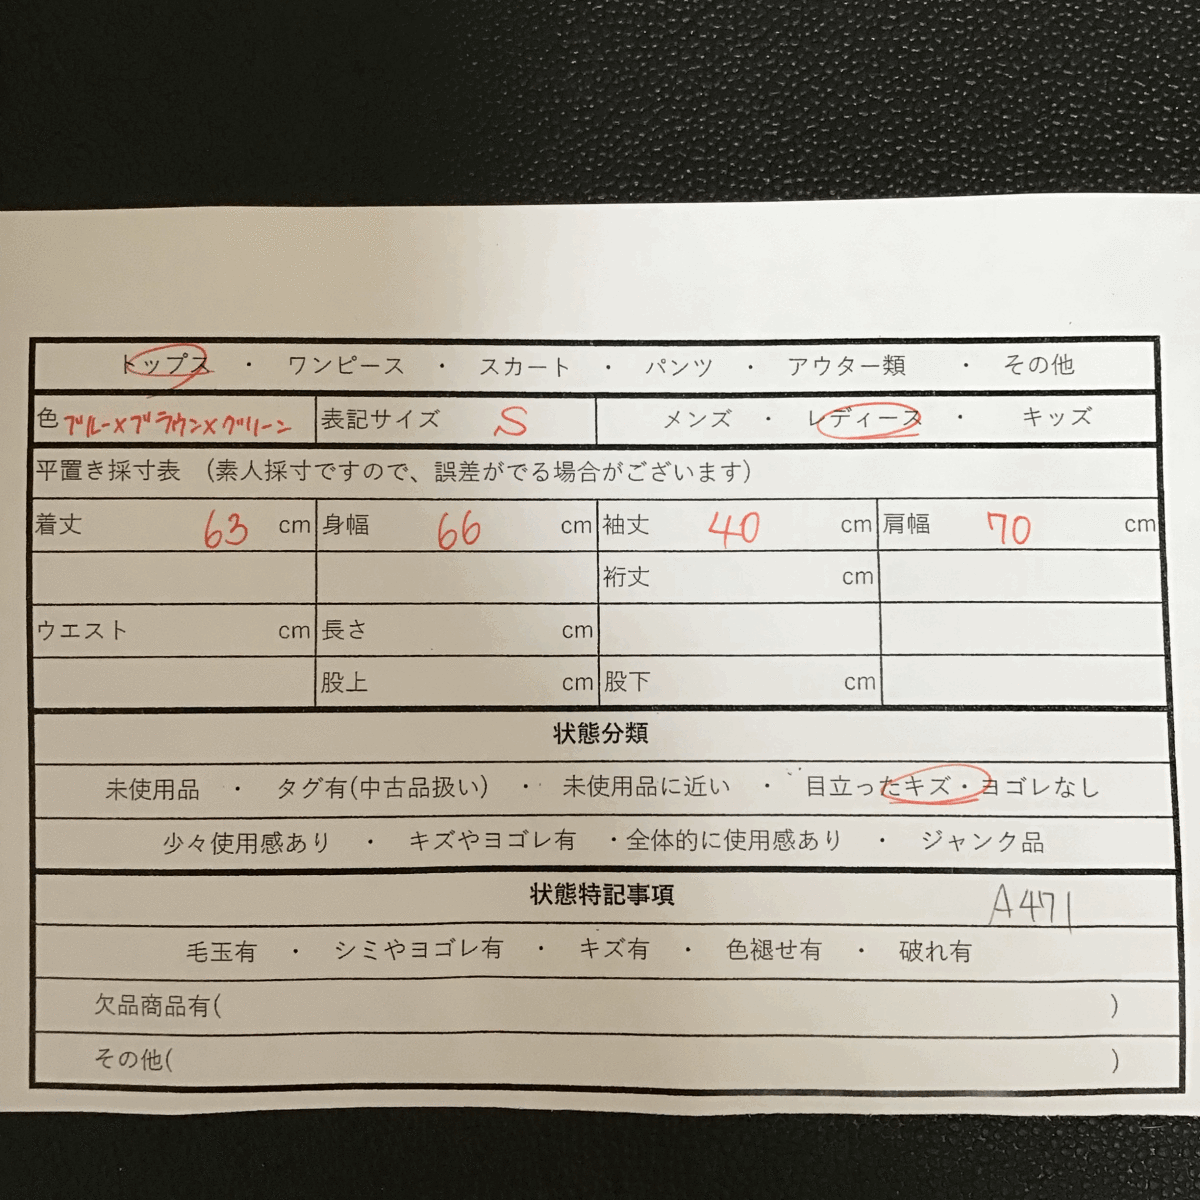 トップス ・ ワンピース ・ スカート ・ パンツ ・ アウター類 ・ その他
色 ブルー×ブラウン×グリーン 表記サイズ S メンズ ・ レディース ・ キッズ
平置き採寸表 (素人採寸ですので、誤差がでる場合がございます)
着丈 63 cm 身幅 66 cm 袖丈 40 cm 肩幅 70 cm
裄丈 cm
ウエスト cm 長さ cm
股上 cm 股下 cm
状態分類
未使用品 ・ タグ有(中古品扱い) ・ 未使用品に近い ・ 目立ったキズ・ヨゴレなし
少々使用感あり ・ キズやヨゴレ有 ・全体的に使用感あり ・ ジャンク品
状態特記事項 A471
毛玉有 ・ シミやヨゴレ有 ・ キズ有 ・ 色褪せ有 ・ 破れ有
欠品商品有( )
その他( )